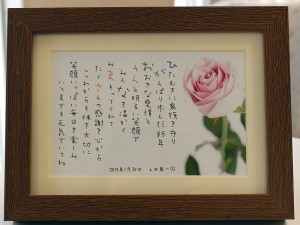 ひたむきに家族を守り
がんばり歩んだ85年
おおきな愛情と
うんと明るい笑顔で
みんなを温かく
まもってくれて
たくさんの感謝を心から
これからも体を大切に
笑顔いっぱい毎日を楽しみ
いつまでも元気でいてね
2019年1月30日